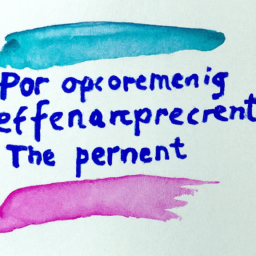 Por opcoremenig
effenarprecrent
The pernent